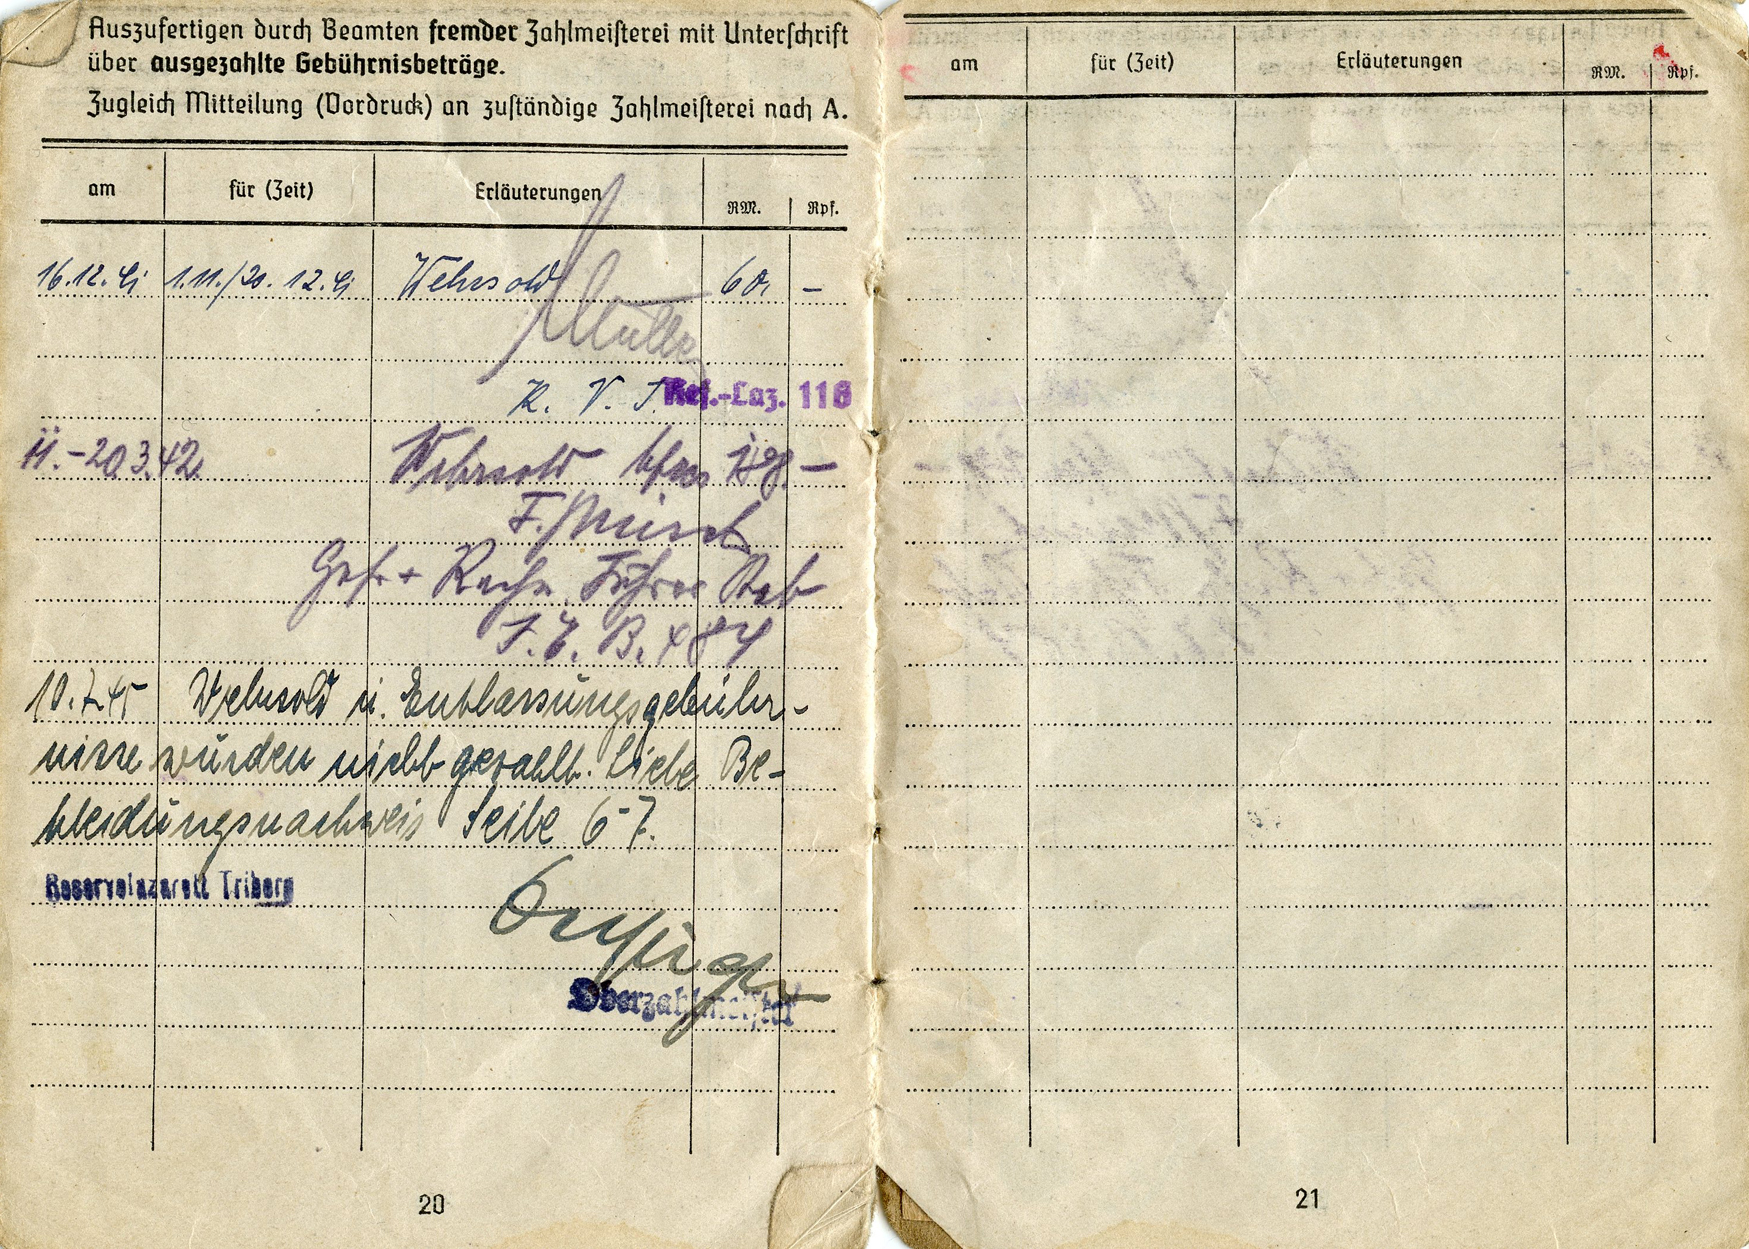 Auszufertigen durch Beamten fremder Zahlmeisterei mit Unterschrift
über ausgezahlte Gebührnisbeträge.
Zugleich Mitteilung (Vordruck) an zuständige Zahlmeisterei nach A.
am für (Zeit) Erläuterungen RM. Rpf.
16.12.41 1.11./20. 12.41 Wehrsold 60, –
Müller
K. V. I. Res.-Laz. 116
11.-20.3.42. Wehrsold –
F.
Gefr. +
B.
10.7.45 Wehrsold u. Entlassungsgebühr-
nisse wurden nicht gezahlt. Siehe Be-
kleidungsnachweis Seite 6-7.
Reservelazarett Triberg
Oberzahlmeister
20
am für (Zeit) Erläuterungen RM. Rpf.
21